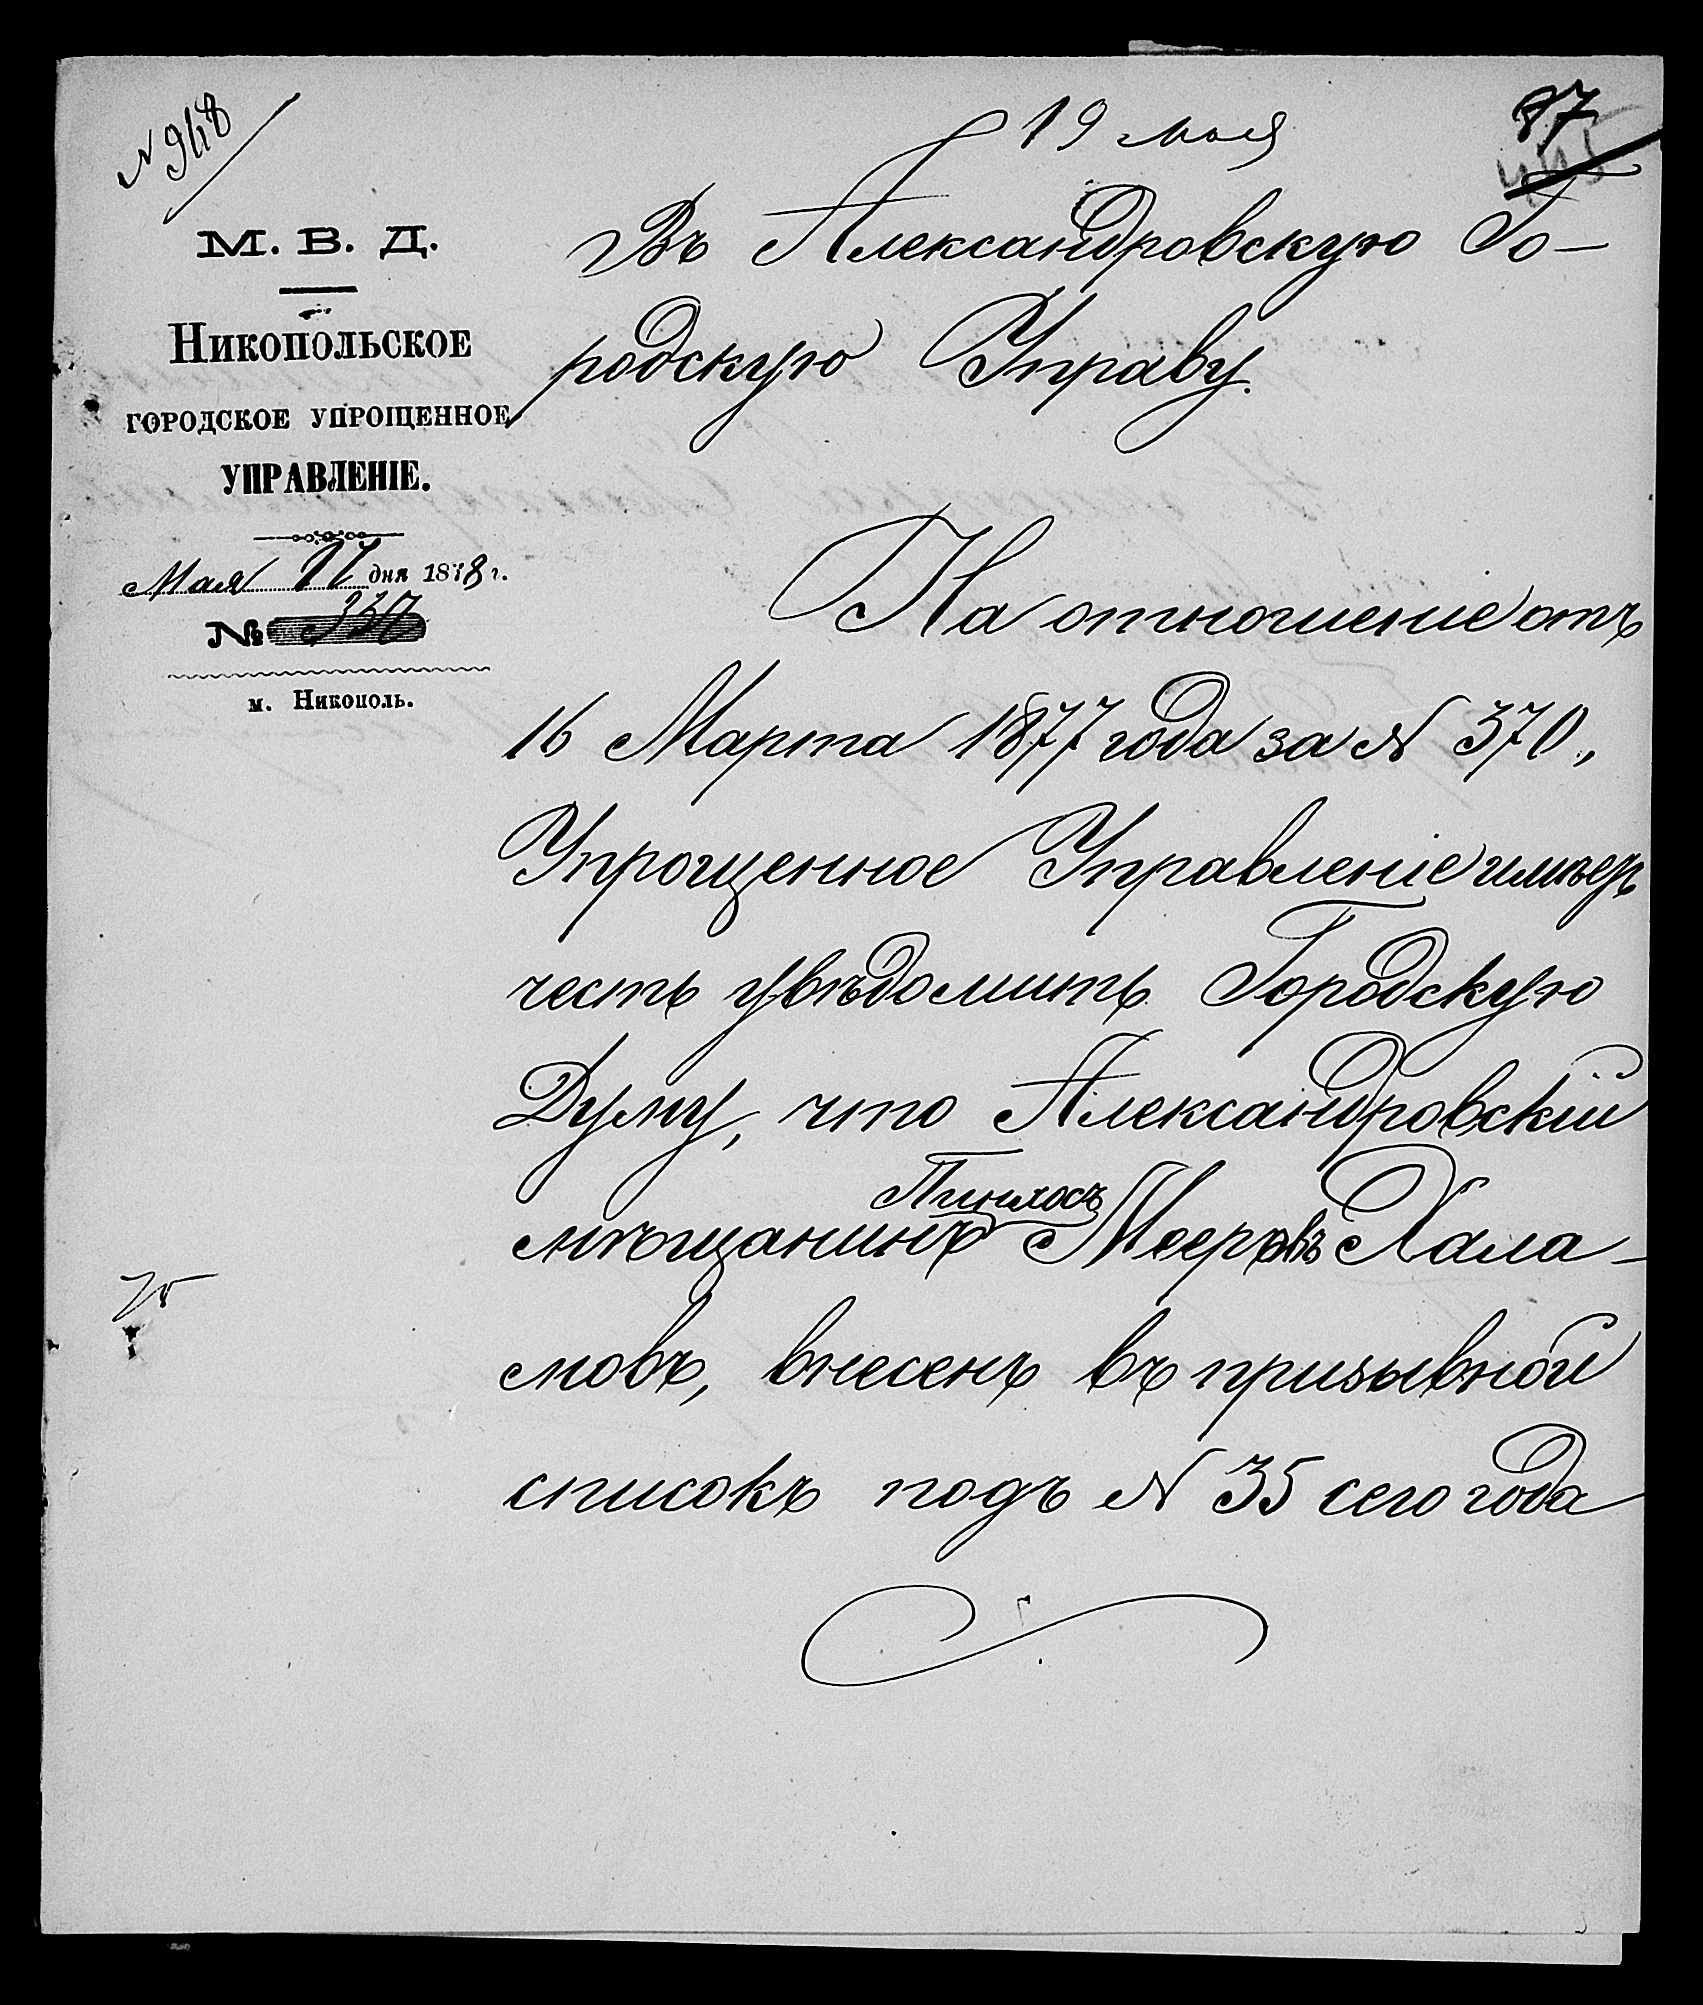 № 948
19 мая
87
М. В. Д.
Никопольское
городское упрощенное
управленіе.
Мая 17 дня 1878 г.
№ 337
м. Никополь.
Въ Александровскую Го-
родскую Управу.
На отношеніе отъ
16 Марта 1877 года за № 370,
Упрощенное Управленіе имѣетъ
честь увѣдомить Городскую
Думу, что Александровскій
Пинхосъ
мѣщанинъ Мееровъ Хала-
мовъ, внесенъ въ призывной
списокъ подъ № 35 сего года